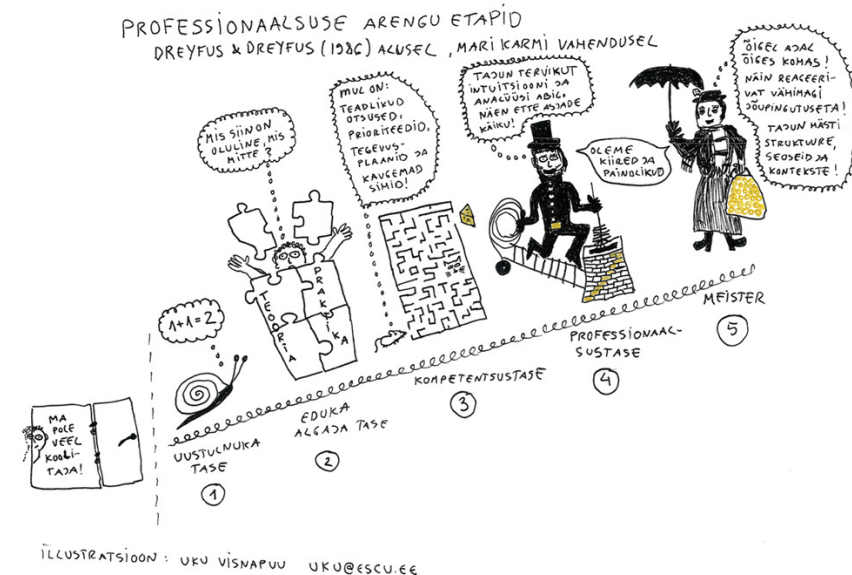 PROFESSIONAALSUSE ARENGU ETAPID
DREYFUS & DREYFUS (1986) ALUSEL, MARI KARMI VAHENDUSEL
MA
POLE
VEEL
KOOLI-
TAJA!
1+1=2
UUSTULNUKA
TASE
1
MIS SIIN ON
OLULINE, MIS
MITTE?
TEOORIA
PRAKTIKA
EDUKA
ALGAJA TASE
2
MUL ON:
TEADLIKUD
OTSUSED,
PRIORITEEDID,
TEGEVUS-
PLAANID JA
KAUGEMAD
SIHID!
KOMPETENTSUSTASE
3
TAJUN TERVIKUT
INTUITSIOONI JA
ANALÜÜSI ABIL,
NÄEN ETTE ASJADE
KÄIKU!
OLEME
KIIRED JA
PAINDLIKUD
PROFESSIONAAL-
SUSTASE
4
ÕIGEL AJAL
ÕIGES KOHAS!
NÄIN REAGEERI-
VAT VÄHIMAGI
JÕUPINGUTUSETA!
TAJUN HÄSTI
STRUKTUURE,
SEOSEID JA
KONTEKSTE!
MEISTER
5
ILLUSTRATSIOON: UKU VISNAPUU UKU@ESCU.EE